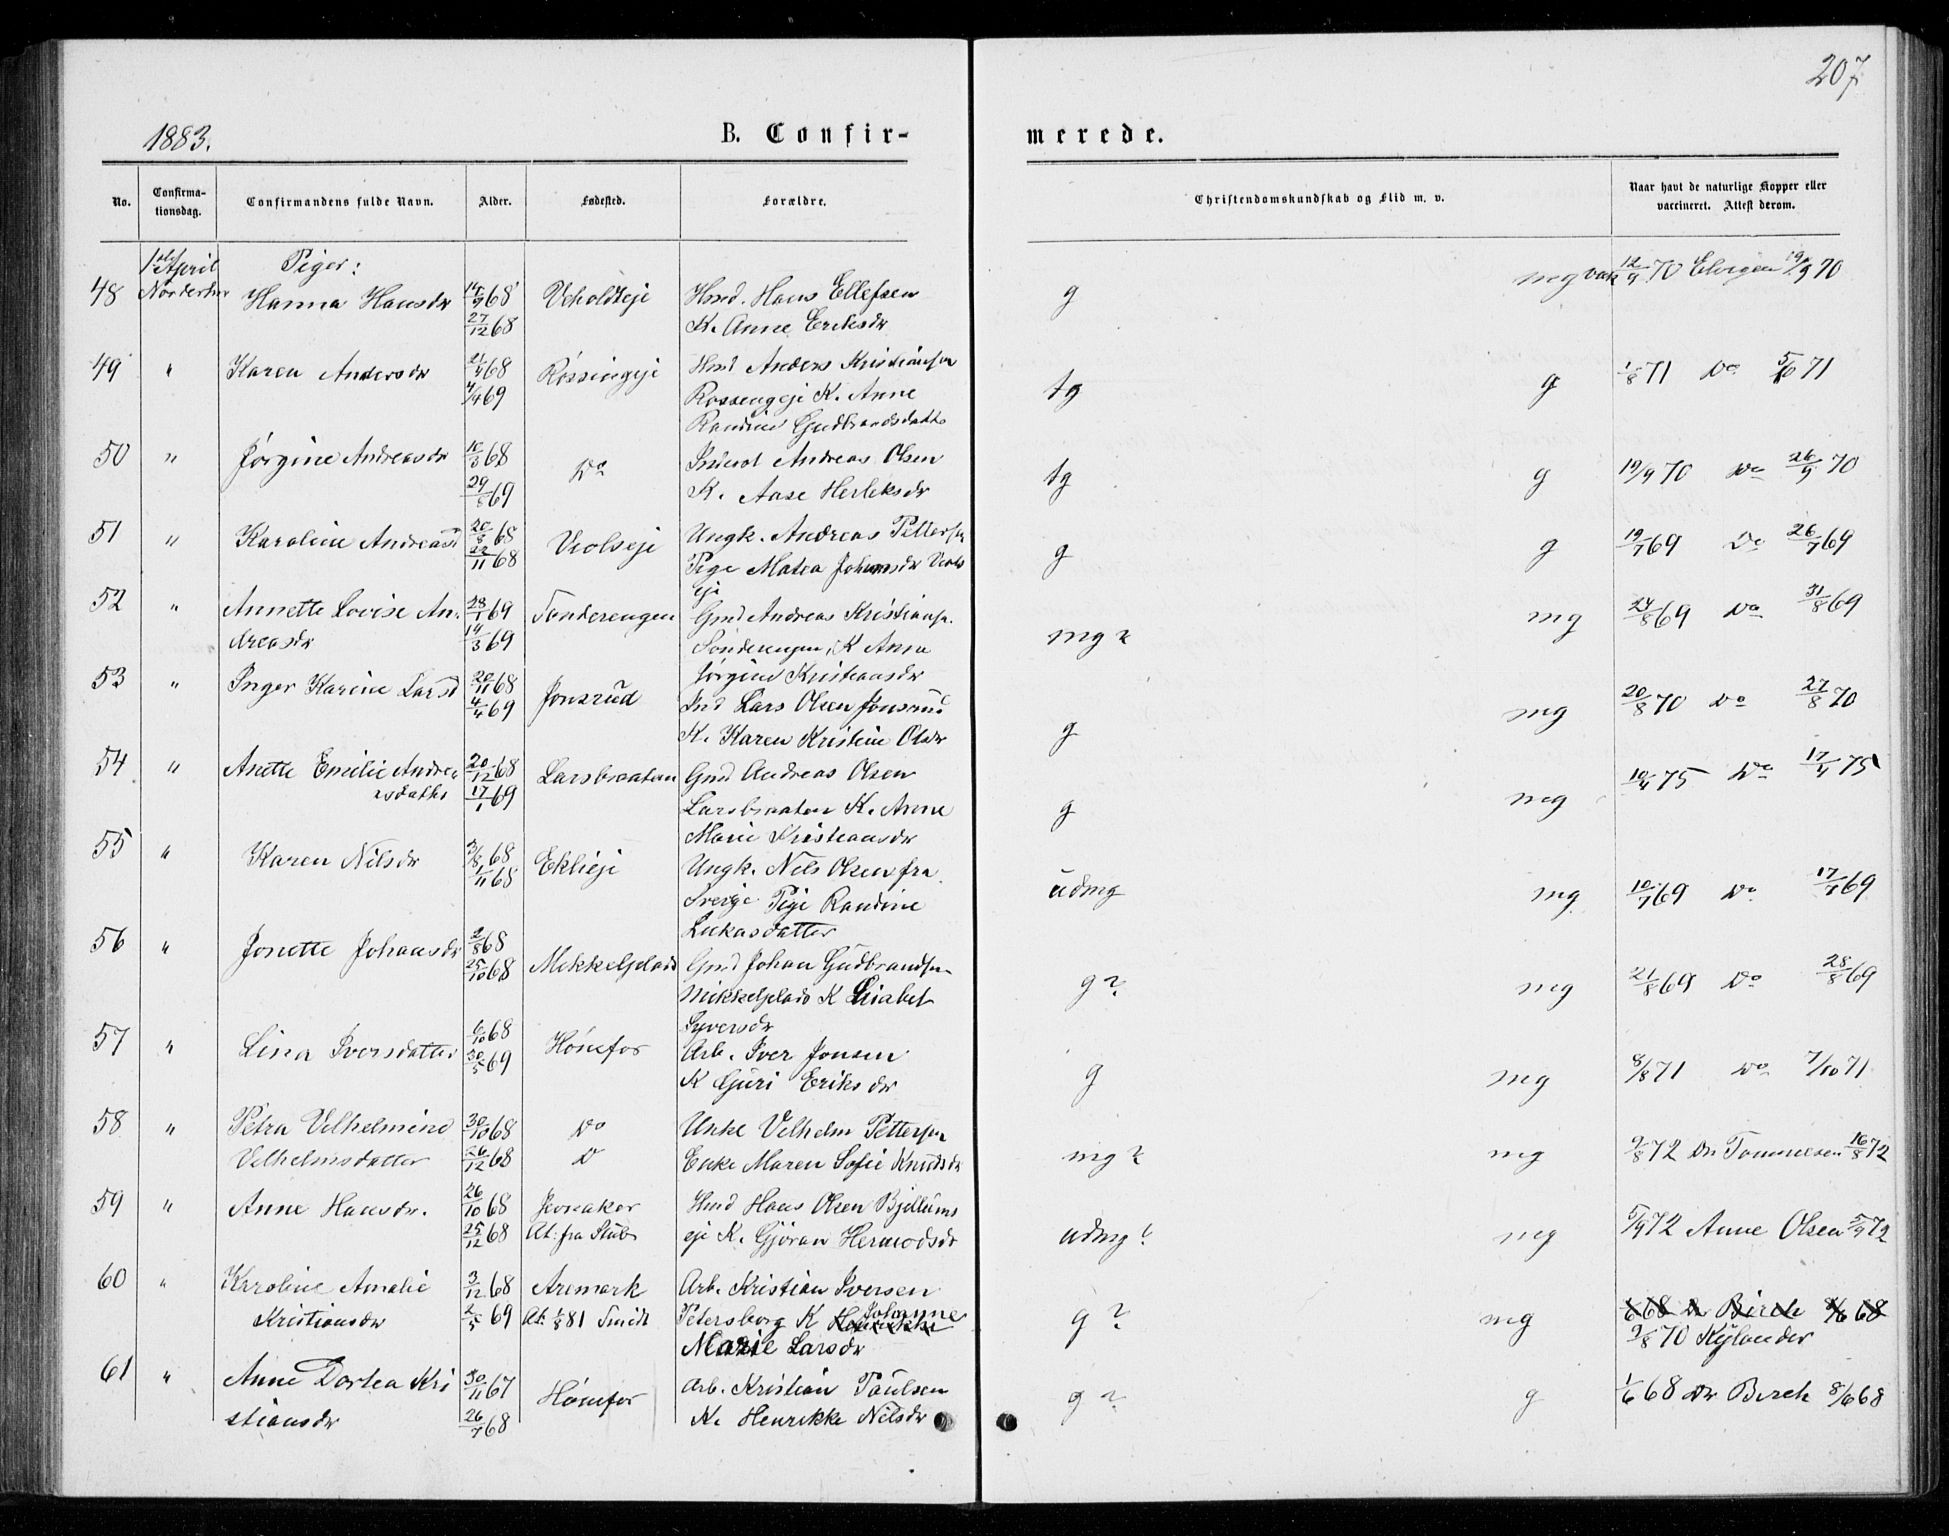 207
1883.
B. Confir-
merede.
No. Confirma-tionsdag. Confirmandens fulde Navn. Alder. Fødested. Forældre. Christendomskundskab og Flid m. v. Naar havt de naturlige Kopper eller vaccineret. Attest derom.
1ste April Piger:
48 Norderhov Hanna Hansdr 14/9 68 Veholdteje Hmd. Hans Ellefsen g mg vac 12/9 70 Elvigen 19/9 70
27/12 68 K. Anne Eriksdr
49 " Karen Andersdr 21/4 68 Røssingeje Hmd Anders Kristiansen tg g 1/8 71 Do 5/10 71
4/4 69 Rossengeje K. Anne
Randine Gudbrandsdatter
50 " Jørgine Andreasdr 10/3 68 Do Inderst Andreas Olsen tg g 19/9 70 Do 26/9 70
29/8 69 K. Aase Herleksdr
51 " Karoline Andreasd 20/8 68 Veolseje Ungk. Andreas Pettersen g g 19/7 69 Do 26/7 69
22/11 68 Pige Matea Johansdr Veols
eje
52 " Annette Lovise An- 28/1 69 Tonderengen Gmd Andreas Kristiansen mg? mg 24/8 69 Do 31/8 69
dreasdr 14/3 69 Sonderengen, K Anna
Jørgine Kristiansdr
53 " Inger Karine Larsd 20/11 68 Jonsrud Ind Lars Olsen Jonsrud g mg 20/8 70 Do 27/8 70
4/4 69 K. Karen Kristine Olsdr
54 " Anette Emilie Andrea 20/12 68 Larsbraaten Gmd Andreas Olsen g mg 10/4 75 Do 17/4 75
asdatter 17/1 69 Larsbraaten K. Anne
Marie Kristiansdr
55 " Karen Nilsdr 3/8 68 Eklieje Ungk. Nils Olsen fra udmg mg 10/7 69 Do 17/7 69
1/11 68 Sverige Pige Randine
Lukasdatter
56 " Jonette Johansdr 2/8 68 Mikkelsplads Gmd Johan Gudbrandsen g? mg 21/8 69 Do 28/8 69
25/10 68 Mikkelsplads K Lisabet
Syversdr
57 " Lina Iversdatter 6/10 68 Hønefos Arb. Iver Jonsen g mg 8/8 71 Do 7/10 71
30/5 69 K Guri Eriksdr
58 " Petra Velhelmine 30/10 68 Do Unke Velhelm Pettersen mg? mg 9/8 72 Dr Tommesen 16/8 72
Velhelmsdatter 26/12 68 D Enke Maren Sofie Knudsdr
59 " Anne Hansdr. 26/10 68 Jevnaker Hmd Hans Olsen Bjellums udmg? mg 5/9 72 Anne Olsen 5/9 72
25/12 68 At: fra Stub eje K. Gjøran Hermodsdr
60 " Karoline Amalie 3/12 68 Aremark Arb. Kristian Iversen g? mg 1/6 68 Dr Birch 8/6 68
Kristiansdr 2/5 69 At: 1/8 81 Smidt Petersborg K Henrikke Johanne 9/8 70 Kylander
Marie Larsdr
61 " Anne Dortea Kri 30/11 67 Hønefos Arb. Kristian Paulsen g? g 1/6 68 Dr Birch 8/6 68
stiansdr 26/7 68 K. Henrikke Nilsdr